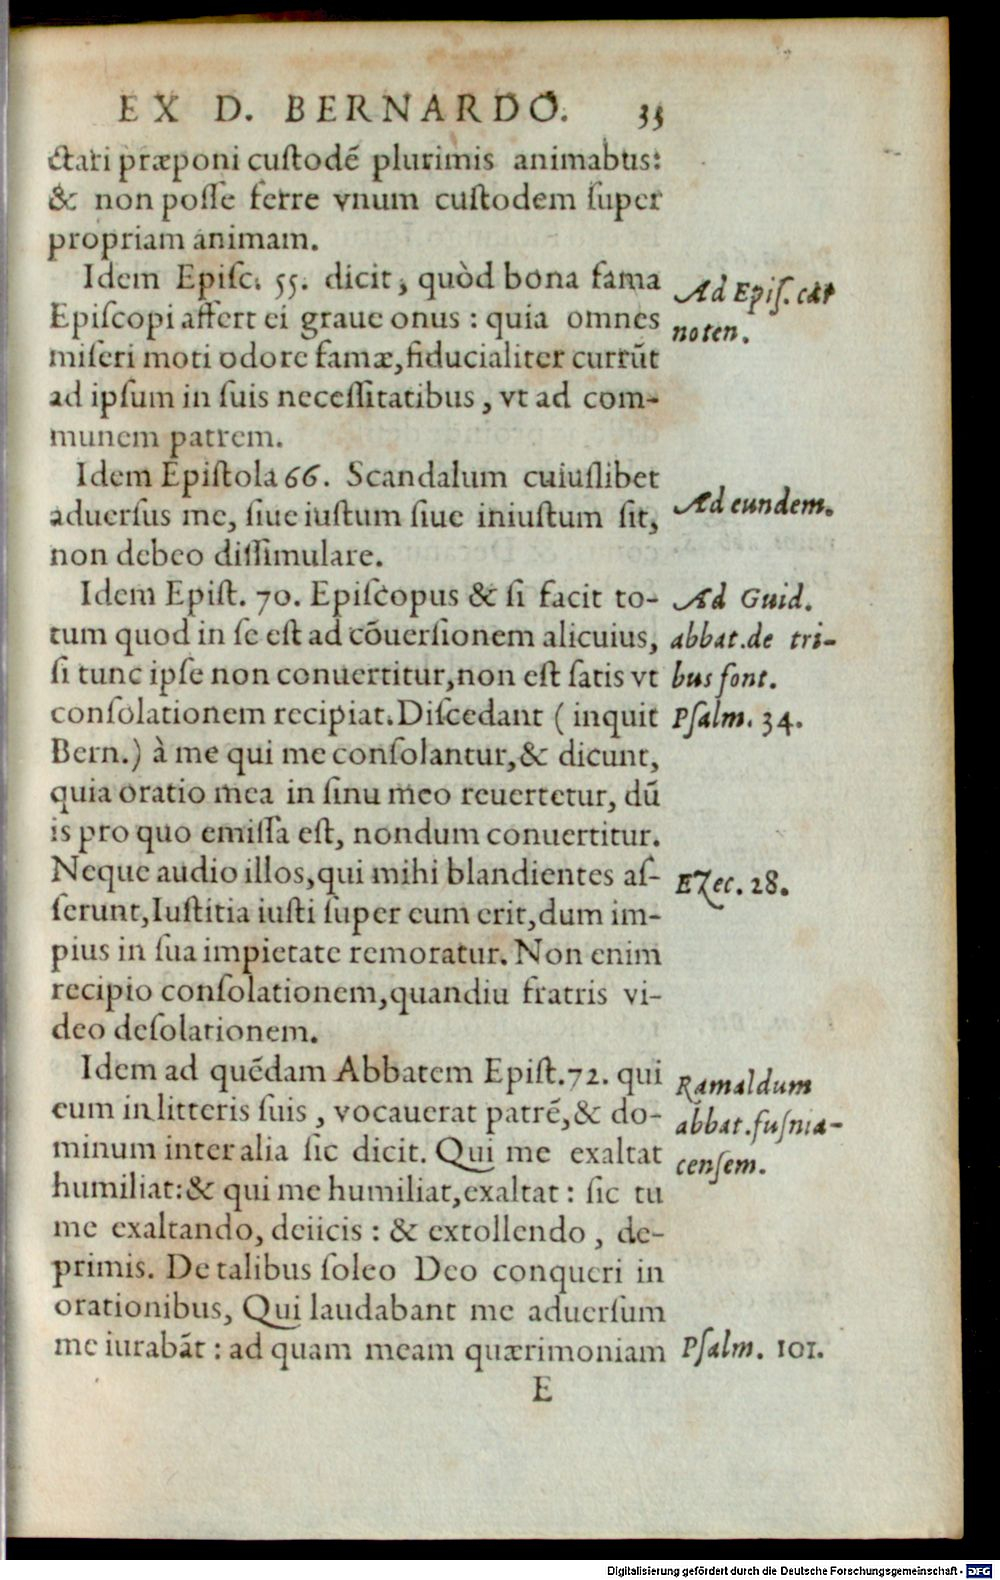 EX D. BERNARDO. 33
ctari præponi custodē plurimis animabus:
& non posse ferre vnum custodem super
propriam animam.
Idem Episc. 55. dicit, quòd bona fama
Episcopi affert ei graue onus : quia omnes
miseri moti odore famæ, fiducialiter currūt
ad ipsum in suis necessitatibus, vt ad com-
munem patrem.
Ad Epis. cat
noten.
Idem Epistola 66. Scandalum cuiuslibet
aduersus me, siue iustum siue iniustum sit,
non debeo dissimulare.
Ad eundem.
Idem Epist. 70. Episcopus & si facit to-
tum quod in se est ad cōuersionem alicuius,
si tunc ipse non conuertitur, non est satis vt
consolationem recipiat. Discedant (inquit
Bern.) à me qui me consolantur, & dicunt,
quia oratio mea in sinu meo reuertetur, dū
is pro quo emissa est, nondum conuertitur.
Neque audio illos, qui mihi blandientes as-
serunt, Iustitia iusti super eum erit, dum im-
pius in sua impietate remoratur. Non enim
recipio consolationem, quandiu fratris vi-
deo desolationem.
Ad Guid.
abbat. de tri-
bus font.
Psalm. 34.
Ezec. 28.
Idem ad quēdam Abbatem Epist. 72. qui
eum in litteris suis, vocauerat patrē, & do-
minum inter alia sic dicit. Qui me exaltat
humiliat: & qui me humiliat, exaltat : sic tu
me exaltando, deiicis : & extollendo, de-
primis. De talibus soleo Deo conqueri in
orationibus, Qui laudabant me aduersum
me iurabāt : ad quam meam quærimoniam
Ramaldum
abbat. fusnia-
censem.
Psalm. 101.
E
Digitalisierung gefördert durch die Deutsche Forschungsgemeinschaft - DFG